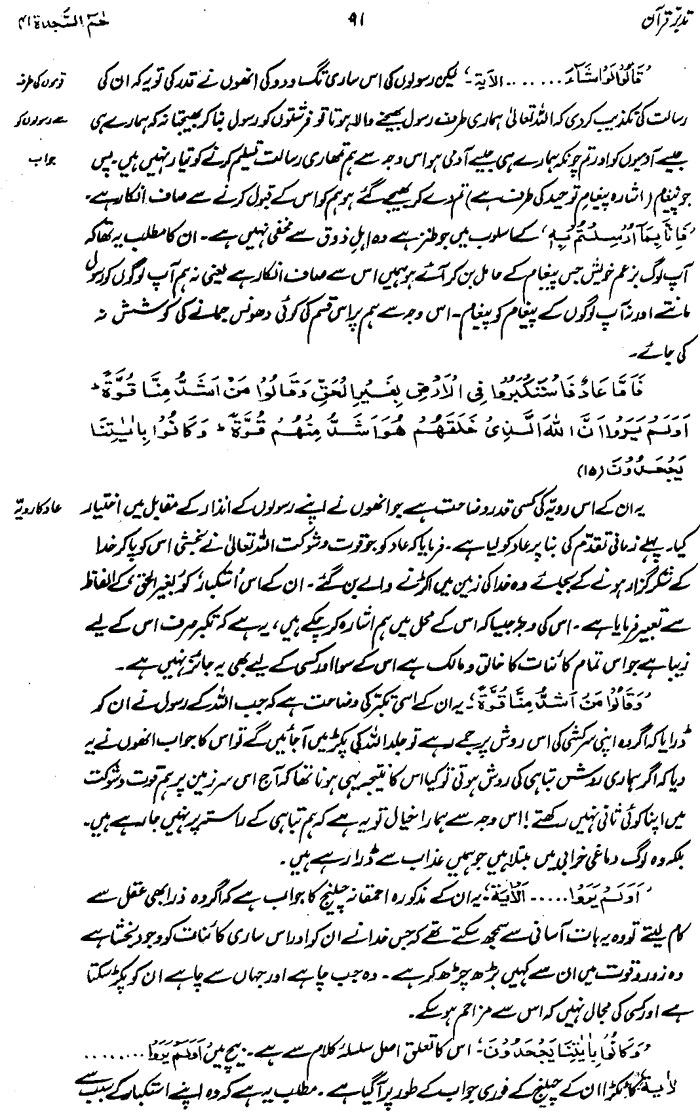 تدبّرِ قرآن ۹۱ حٰمٓ السَّجدۃ ۴۱
’قَالُوْا لَوْ شَآءَ ...... الاٰیۃ‘۔ لیکن رسولوں کی اس ساری تگ و دو کی انھوں نے قدر کی تو یہ کہ ان کی
قوموں کی طرف
رسالت کی تکذیب کر دی کہ اللہ تعالیٰ ہماری طرف رسول بھیجنے والا ہوتا تو فرشتوں کو رسول بنا کر بھیجتا نہ کہ ہمارے ہی
سے رسولوں کو
جیسے آدمیوں کو اور تم چونکہ ہمارے ہی جیسے آدمی ہو اس وجہ سے ہم تمھاری رسالت تسلیم کرنے کو تیار نہیں ہیں۔ پس
جواب
جو پیغام (اشارہ پیغامِ توحید کی طرف ہے) تم دے کر بھیجے گئے ہو ہم کو اس کے قبول کرنے سے صاف انکار ہے۔
’فَاِنَّا بِمَآ اُرْسِلْتُمْ بِہٖ‘ کے اسلوب میں جو طنز ہے وہ اہلِ ذوق سے مخفی نہیں ہے۔ ان کا مطلب یہ تھا کہ
آپ لوگ بزعمِ خویش جس پیغام کے حامل بن کر آئے ہو ہمیں اس سے صاف انکار ہے یعنی نہ ہم آپ لوگوں کو رسول
مانتے اور نہ آپ لوگوں کے پیغام کو پیغام۔ اس وجہ سے ہم پر اس قسم کی کوئی دھونس جمانے کی کوشش نہ
کی جائے۔
فَاَمَّا عَادٌ فَاسْتَکْبَرُوْا فِی الْاَرْضِ بِغَیْرِ الْحَقِّ وَقَالُوْا مَنْ اَشَدُّ مِنَّا قُوَّۃً ؕ
اَوَلَمْ یَرَوْا اَنَّ اللہَ الَّذِیْ خَلَقَھُمْ ھُوَ اَشَدُّ مِنْھُمْ قُوَّۃً ؕ وَکَانُوْا بِاٰیٰتِنَا
یَجْحَدُوْنَ (۱۵)
یہ ان کے اس رویّہ کی کسی قدر وضاحت ہے جو انھوں نے اپنے رسولوں کے انذار کے مقابل میں اختیار
عاد کا رویّہ
کیا۔ پہلے زمانی تقدّم کی بنا پر عاد کو لیا ہے۔ فرمایا کہ عاد کو جو قوت و شوکت اللہ تعالیٰ نے بخشی اس کو پا کر خدا
کے شکرگزار ہونے کے بجائے وہ خدا کی زمین میں اکڑنے والے بن گئے۔ ان کے اس اُستکبار کو ’بغیرالحق‘ کے الفاظ
سے تعبیر فرمایا ہے۔ اس کی وجہ جیسا کہ اس کے محل میں ہم اشارہ کر چکے ہیں، یہ ہے کہ تکبر صرف اس کے لیے
زیبا ہے جو اس تمام کائنات کا خالق و مالک ہے اس کے سوا اور کسی کے لیے بھی یہ جائز نہیں ہے۔
’وَقَالُوْا مَنْ اَشَدُّ مِنَّا قُوَّۃً‘۔ یہ ان کے اسی تکبّر کی وضاحت ہے کہ جب اللہ کے رسول نے ان کو
ڈرایا کہ اگر وہ اپنی سرکشی کی اس روش پر جمے رہے تو جلد اللہ کی پکڑ میں آ جائیں گے تو اس کا جواب انھوں نے یہ
دیا کہ اگر ہماری روش تباہی کی روش ہوتی تو کیا اس کا نتیجہ یہی ہونا تھا کہ آج اس سرزمین پر ہم قوت و شوکت
میں اپنا کوئی ثانی نہیں رکھتے! اس وجہ سے ہمارا خیال تو یہ ہے کہ ہم تباہی کے راستہ پر نہیں جا رہے ہیں۔
بلکہ وہ لوگ دماغی خرابی میں مبتلا ہیں جو ہمیں عذاب سے ڈرا رہے ہیں۔
’اَوَلَمْ یَرَوْا ..... اَلاٰیۃ‘۔ یہ ان کے مذکورہ احمقانہ چیلنج کا جواب ہے کہ اگر وہ ذرا بھی عقل سے
کام لیتے تو وہ یہ بات آسانی سے سمجھ سکتے تھے کہ جس خدا نے ان کو اور اس ساری کائنات کو وجود بخشا ہے
وہ زور و قوت میں ان سے کہیں بڑھ چڑھ کر ہے۔ وہ جب چاہے اور جہاں سے چاہے ان کو پکڑ سکتا
ہے اور کسی کی مجال نہیں کہ اس سے مزاحم ہو سکے۔
’وَکَانُوْا بِاٰیٰتِنَا یَجْحَدُوْنَ‘۔ اس کا تعلق اصل سلسلۂ کلام سے ہے۔ بیچ میں اَوَلَمْ یَرَوْا ........
لاٰیۃ‘ کا ٹکڑا ان کے چیلنج کے فوری جواب کے طور پر آ گیا ہے۔ مطلب یہ ہے کہ وہ اپنے استکبار کے سبب سے